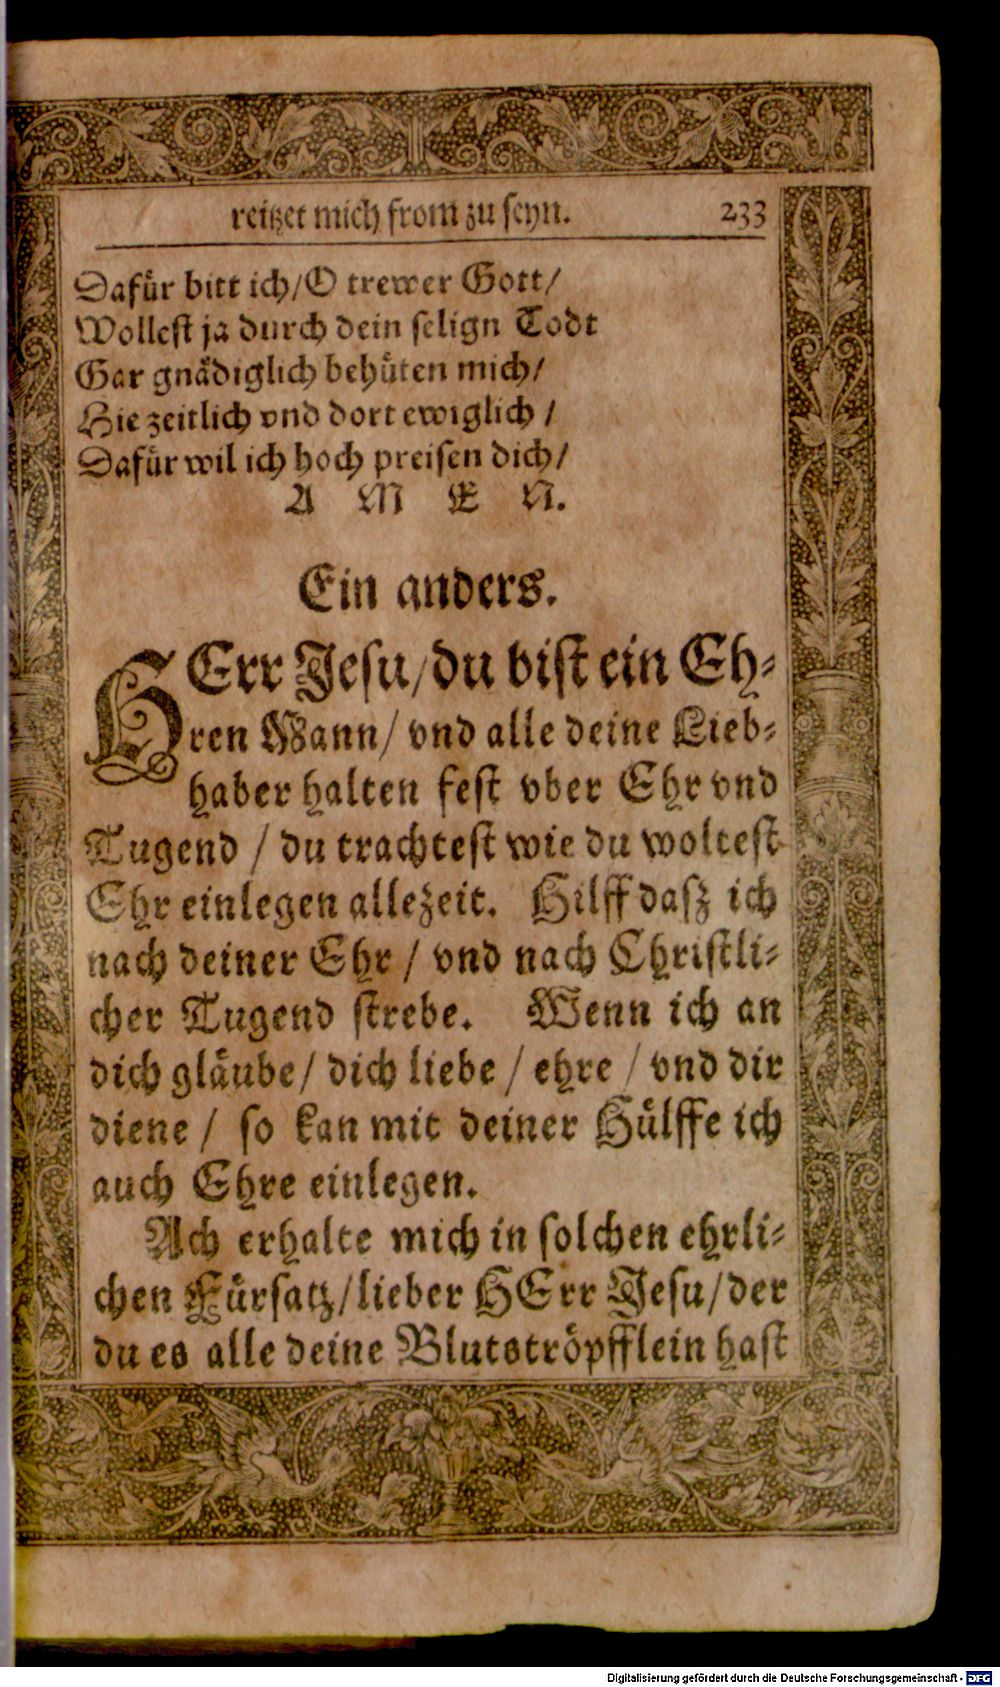 reitzet mich from zu seyn. 233
Dafür bitt ich/ O trewer Gott/
Wollest ja durch dein selign Todt
Gar gnädiglich behüten mich/
Hie zeitlich vnd dort ewiglich /
Dafür wil ich hoch preisen dich/
A M E N.
Ein anders.
HErr Jesu/ du bist ein Eh-
ren Mann/ vnd alle deine Lieb-
haber halten fest vber Ehr vnd
Tugend / du trachtest wie du woltest
Ehr einlegen allezeit. Hilff dasz ich
nach deiner Ehr / vnd nach Christli-
cher Tugend strebe. Wenn ich an
dich gläube/ dich liebe / ehre / vnd dir
diene / so kan mit deiner Hülffe ich
auch Ehre einlegen.
Ach erhalte mich in solchen ehrli-
chen Fürsatz/ lieber HErr Jesu/ der
du es alle deine Blutströpfflein hast
Digitalisierung gefördert durch die Deutsche Forschungsgemeinschaft - DFG